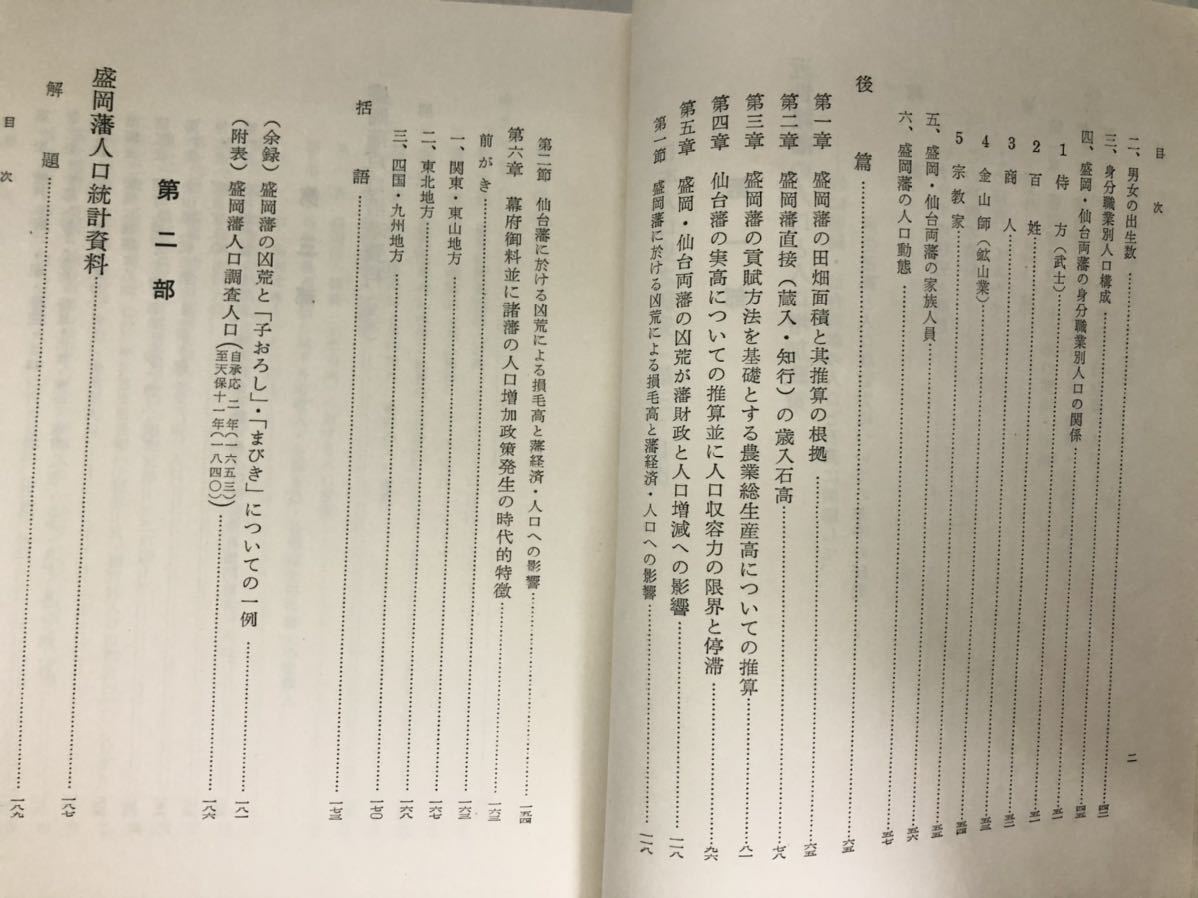 目次
二
二、男女の出生数……
三、身分職業別人口構成……四二
四、盛岡・仙台両藩の身分職業別人口の関係……四五
1 侍方(武士)……五一
2 百姓……五一
3 商人……五二
4 金山師(鉱山業)……五三
5 宗教家……五四
五、盛岡・仙台両藩の家族人員……五五
六、盛岡藩の人口動態……五六
五七
後篇……六五
第一章 盛岡藩の田畑面積と其推算の根拠……六五
第二章 盛岡藩直接(蔵入・知行)の歳入石高……七八
第三章 盛岡藩の貢賦方法を基礎とする農業総生産高についての推算……八一
第四章 仙台藩の実高についての推算並に人口収容力の限界と停滞……九六
第五章 盛岡・仙台両藩の凶荒が藩財政と人口増減への影響……一一八
第一節 盛岡藩に於ける凶荒による損毛高と藩経済・人口への影響……一一八
第二節 仙台藩に於ける凶荒による損毛高と藩経済・人口への影響……一五四
第六章 幕府御料並に諸藩の人口増加政策発生の時代的特徴……一六三
前がき……一六三
一、関東・東山地方……一六七
二、東北地方……一六八
三、四国・九州地方……一七〇
括語……一七三
(余録)盛岡藩の凶荒と「子おろし」・「まびき」についての一例……一八一
(附表)盛岡藩人口調査人口(自承応二年(一六五三)至天保十一年(一八四〇))……一八六
第二部
盛岡藩人口統計資料……一八七
解題……一八九
目次